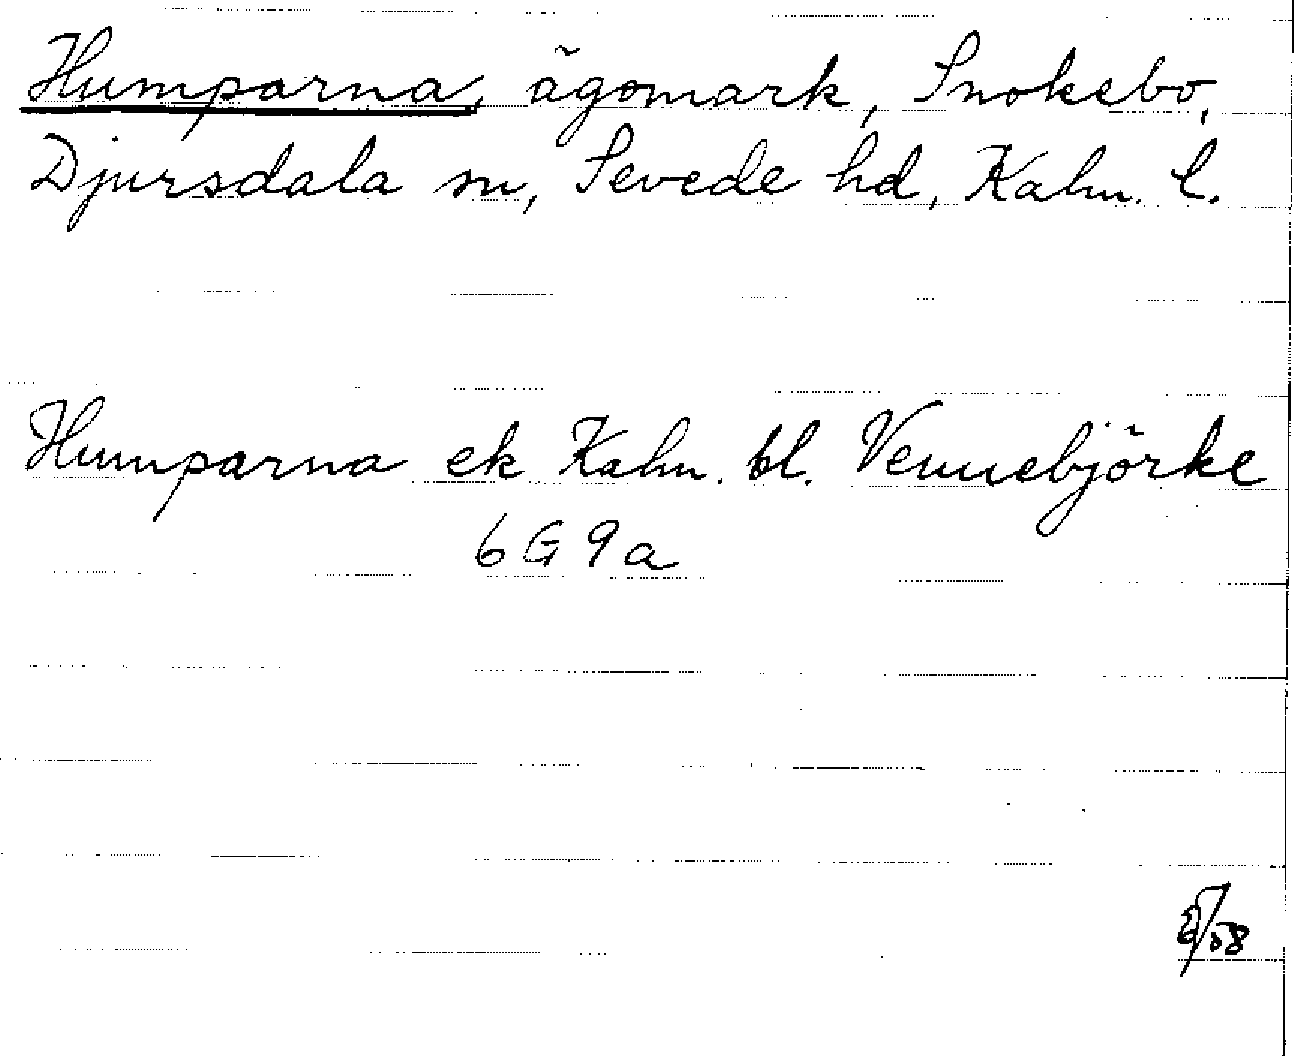 Humparna, ägomark, Snokebo,
Djursdala sn, Sevede hd, Kalm. l.
Humparna ek Kalm. bl. Vennebjörke
6 G 9 a